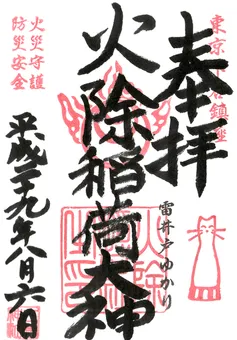 東京下谷鎮座
奉拝
雷井戸ゆかり
火除稲荷大神
火災守護
防災安全
平成二十九年八月六日